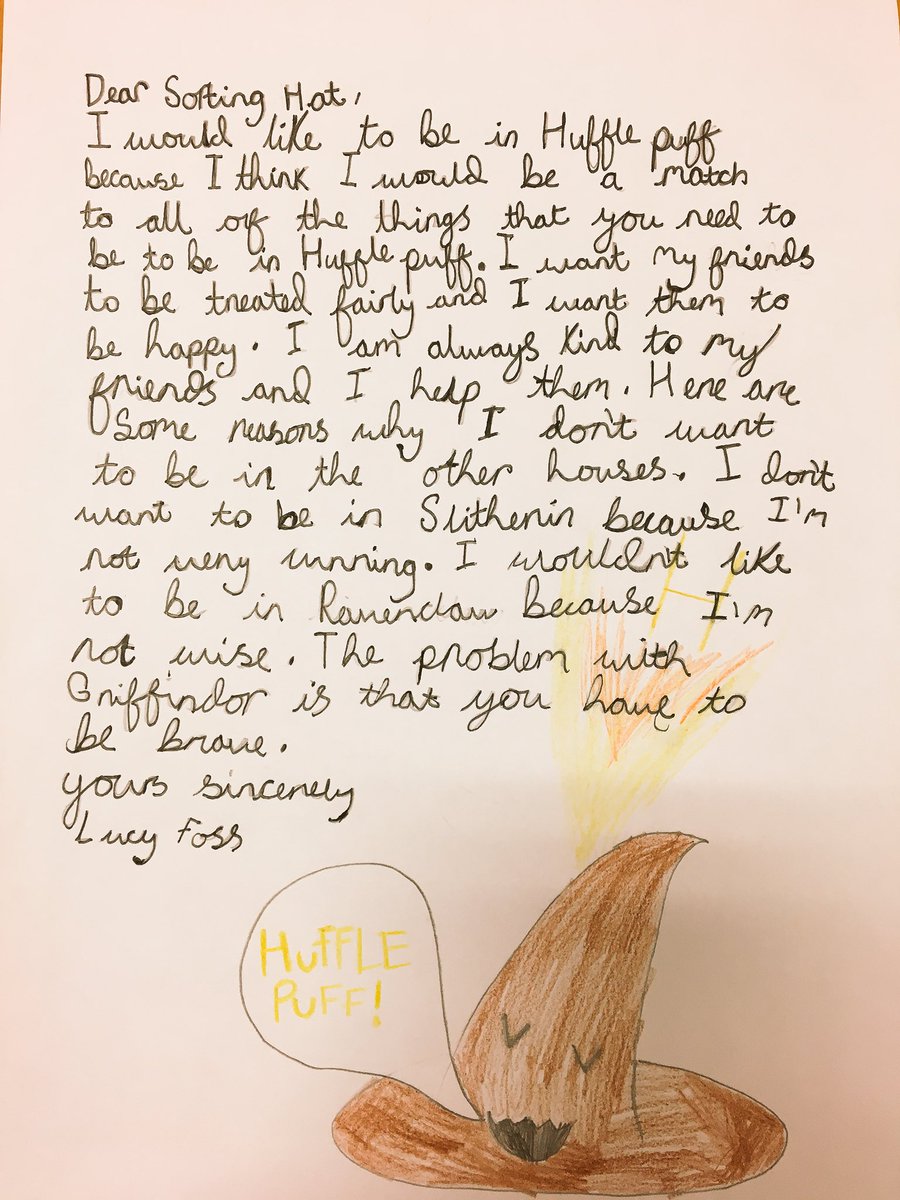 Dear Sorting Hat,
I would like to be in Huffle puff
because I think I would be a match
to all of the things that you need to
be to be in Huffle puff. I want my friends
to be treated fairly and I want them to
be happy. I am always kind to my
friends and I help them. Here are
Some reasons why I don't want
to be in the other houses. I don't
want to be in Slitherin because I'm
not very cunning. I wouldn't like
to be in Ravenclaw because I'm
not wise. The problem with
Griffindor is that you have to
be brave.
yours sincerely
Lucy Foss
H
HUFFLE
PUFF!